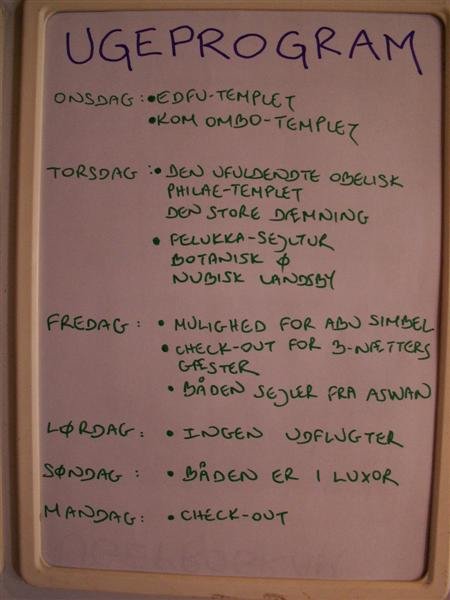 UGEPROGRAM
ONSDAG: • EDFU-TEMPLET
• KOM OMBO-TEMPLET
TORSDAG: • DEN UFULDENDTE OBELISK
PHILAE-TEMPLET
DEN STORE DÆMNING
• FELUKKA-SEJLTUR
BOTANISK Ø
NUBISK LANDSBY
FREDAG: • MULIGHED FOR ABU SIMBEL
• CHECK-OUT FOR 3-NÆTTERS
GÆSTER
• BÅDEN SEJLER FRA ASWAN
LØRDAG: • INGEN UDFLUGTER
SØNDAG: • BÅDEN ER I LUXOR
MANDAG: • CHECK-OUT